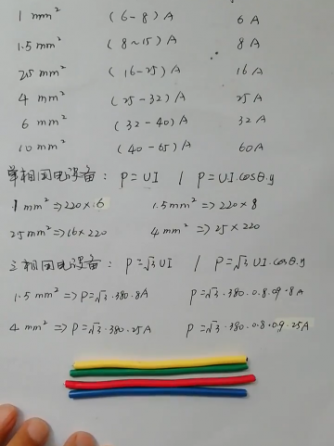 1 mm² (6-8) A 6 A
1.5 mm² (8~15) A 8 A
2.5 mm² (16-25) A 16 A
4 mm² (25-32) A 25 A
6 mm² (32-40) A 32 A
10 mm² (40-65) A 60A
单相用电设备: P=UI / P=UI.cosθ.y
1 mm² ⇒ 220×6 1.5mm² ⇒ 220×8
2.5mm² ⇒ 16×220 4mm² ⇒ 25×220
三相用电设备: P=√3UI / P=√3UI.cosθ.y
1.5 mm² ⇒ P=√3.380.8A P=√3.380.0.8.09.8A
4 mm² ⇒ P=√3.380.25A P=√3.380.0.8.0.9.25A